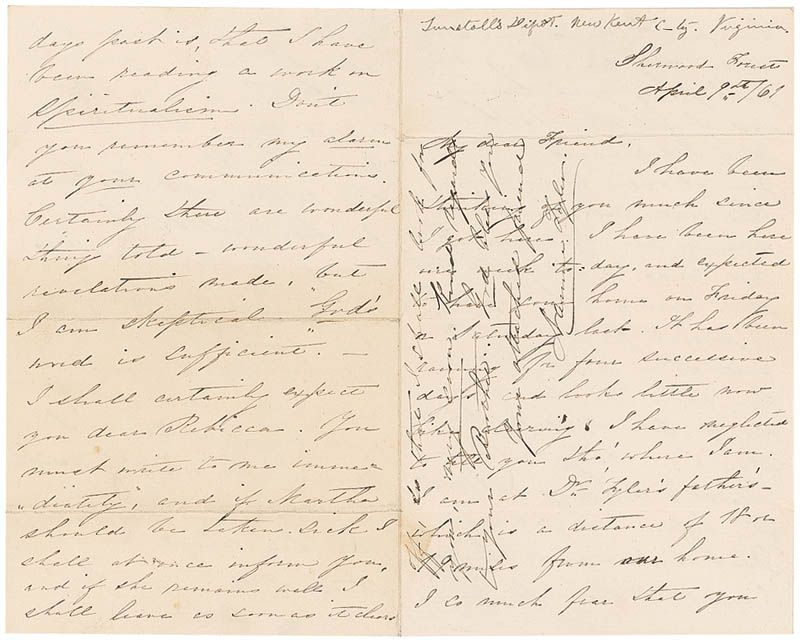 days past is, that I have
been reading a work on
Spiritualism. Don't
you remember my alarm
at your communications.
Certainly there are wonderful
things told – wonderful
revelations made, but
I am skeptical "God's
word is sufficient." –
I shall certainly expect
you dear Rebecca. You
must write to me imme-
"diately", and if Martha
should be taken sick I
shall at once inform you,
and if she remains well I
shall leave as soon as it clears
Tunstall's Depot. New Kent C-ty. Virginia.
Sherwood Forest
April 9th/61
My dear Friend.
I have been
thinking of you much since
I got here. I have been here
one week to-day, and expected
to have gone home on Friday
or Saturday last. It has been
raining for four successive
days and looks little now
like clearing. I have neglected
to tell you tho' where I am.
I am at Dr Tyler's father's –
which is a distance of 18 or
miles from our home.
I so much fear that you
you may soon. Kind regards
to your Brother. God bless you
Your attached friend
Tyler.